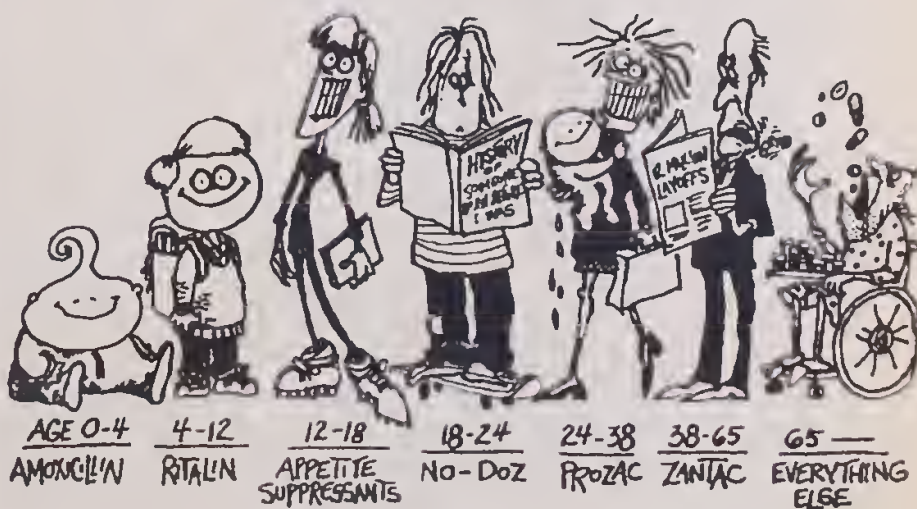 HISTORY
OF
SOMEONE
I WAS
12 MILLION
LAYOFFS
AGE 0-4
AMOXICILLIN
4-12
RITALIN
12-18
APPETITE
SUPPRESSANTS
18-24
NO-DOZ
24-38
PROZAC
38-65
ZANTAC
65 —
EVERYTHING
ELSE